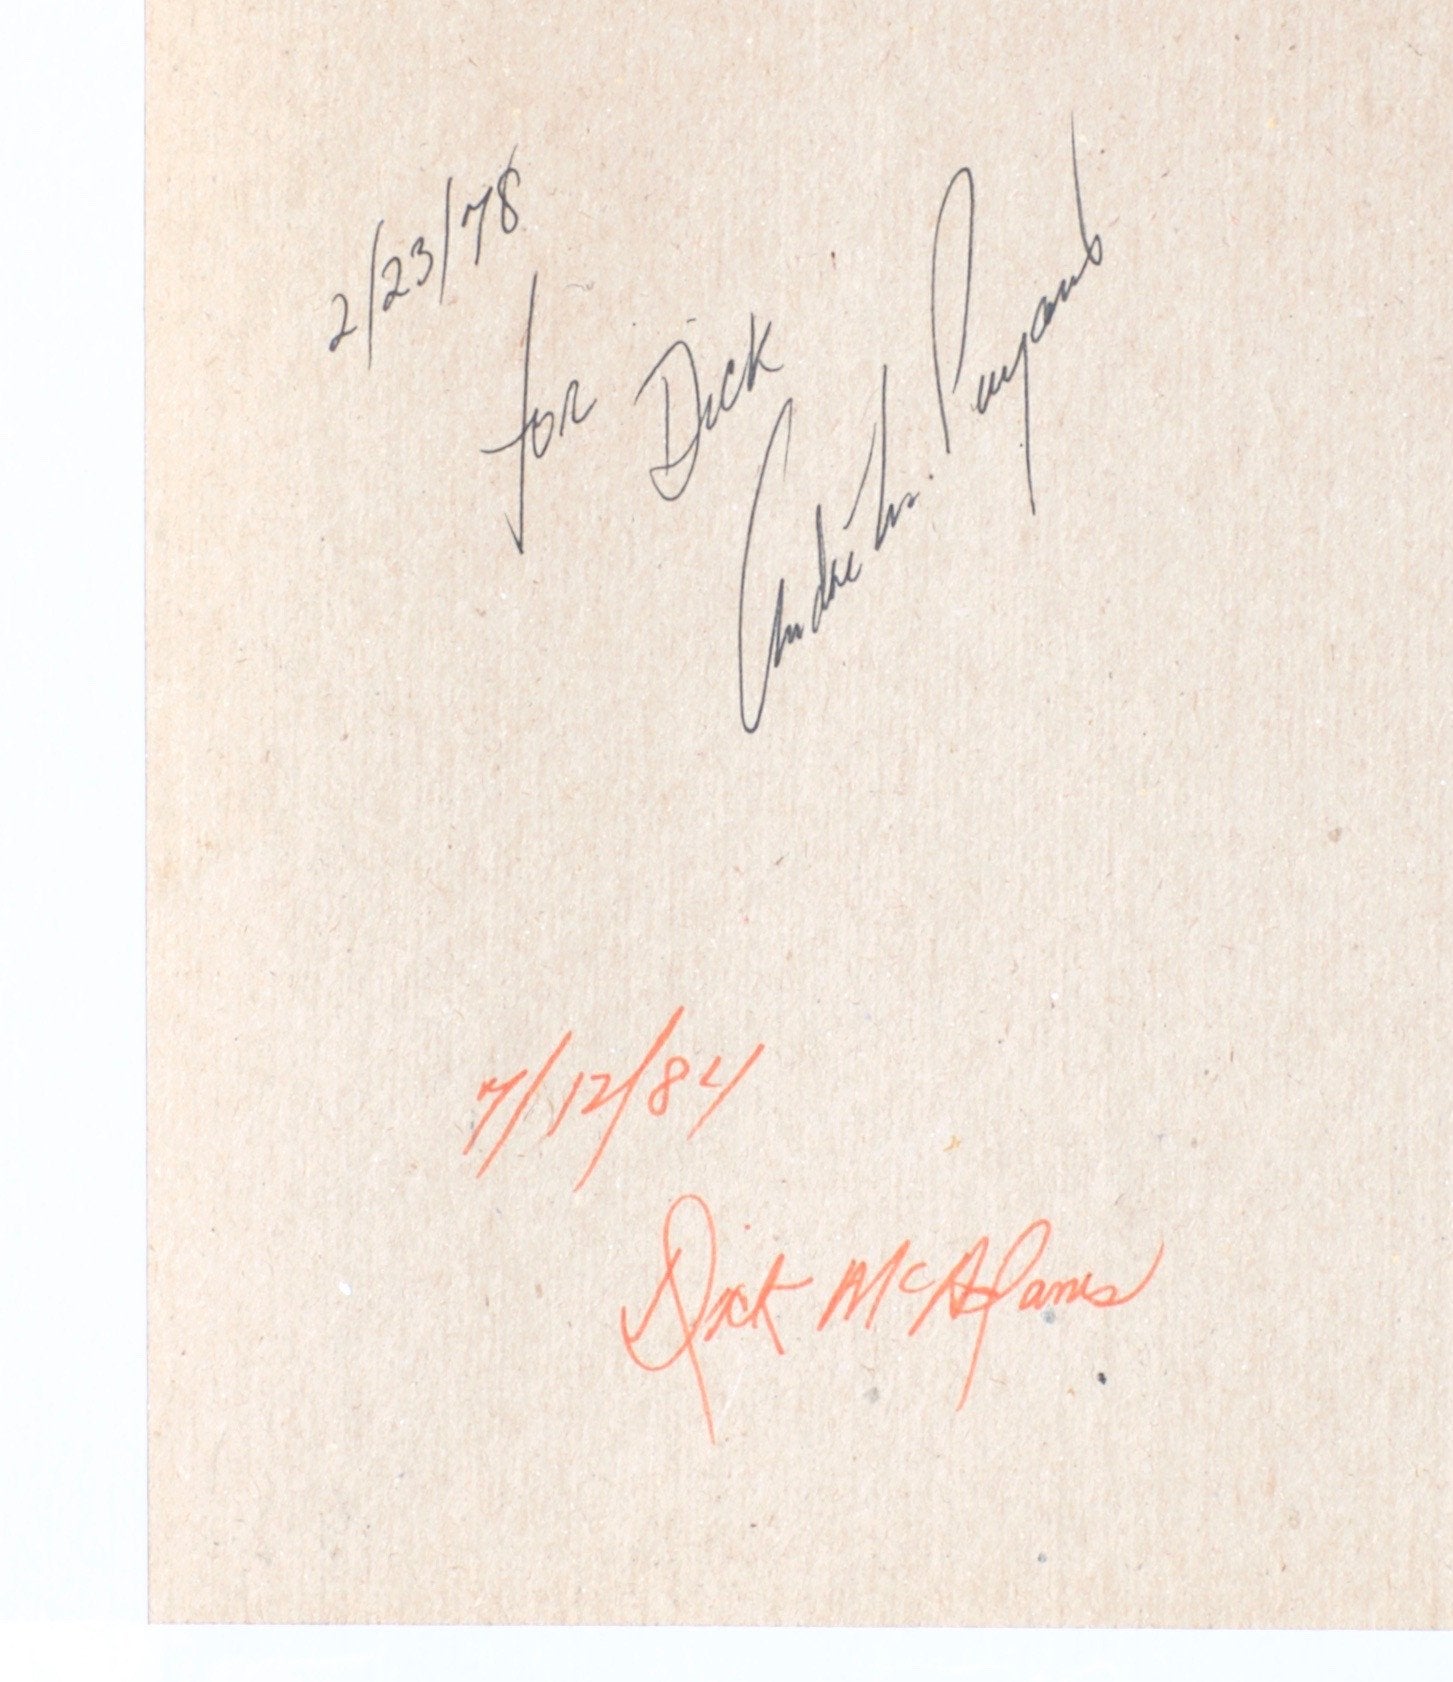 2/23/78
for Dick
7/12/84
Dick McAdams